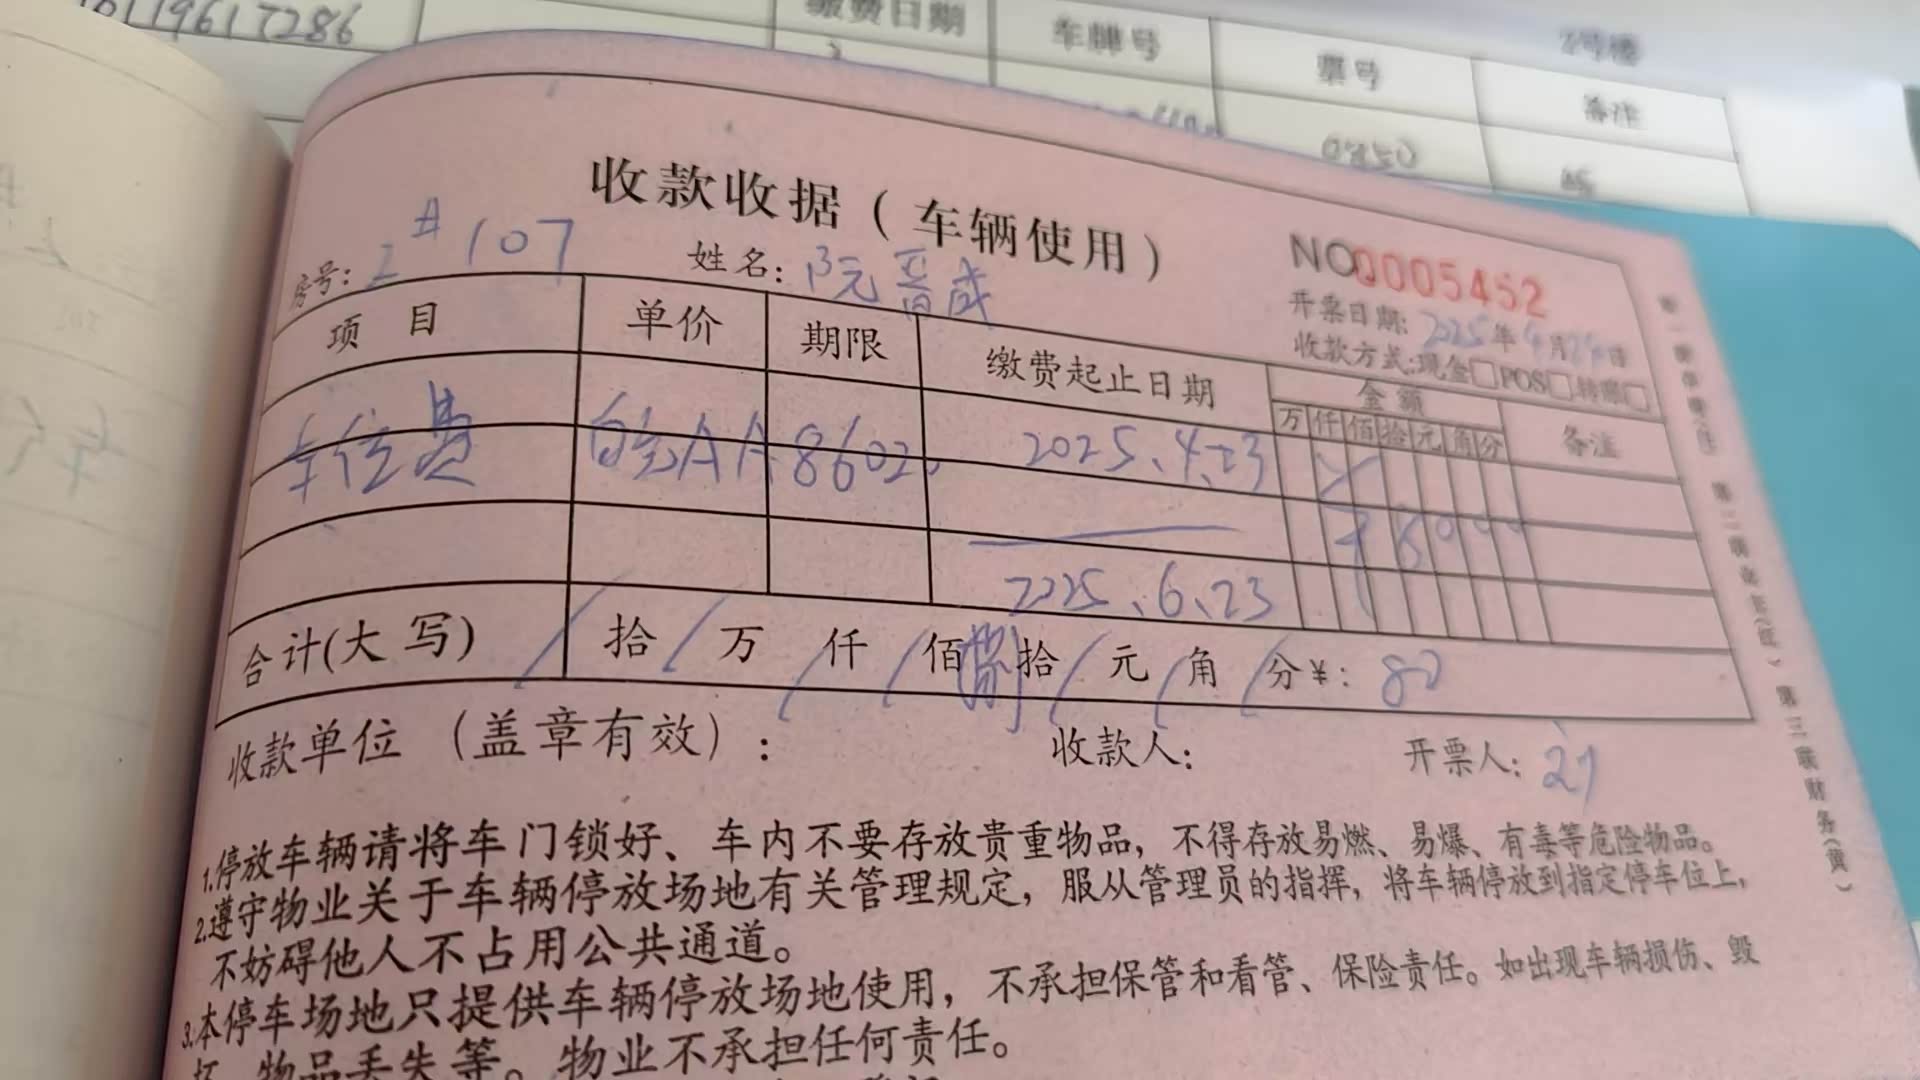 缴费日期 车牌号 票号 备注
收款收据(车辆使用)
NO0005452
房号: 2# 107 姓名: 阮晋成
开票日期: 2025年4月24日
收款方式:现金□POS□转账□
项 目 单价 期限 缴费起止日期 金额 备注
万 仟 佰 拾 元 角 分
车位费 皖AA8602 2025.4.23
2025.6.23
合计(大写) 拾 万 仟 佰 捌 拾 元 角 分¥: 80
收款单位 (盖章有效): 收款人: 开票人:
1.停放车辆请将车门锁好、车内不要存放贵重物品,不得存放易燃、易爆、有毒等危险物品。
2.遵守物业关于车辆停放场地有关管理规定,服从管理员的指挥,将车辆停放到指定停车位上,
不妨碍他人不占用公共通道。
3.本停车场地只提供车辆停放场地使用,不承担保管和看管、保险责任。如出现车辆损伤、毁
坏、物品丢失等。物业不承担任何责任。